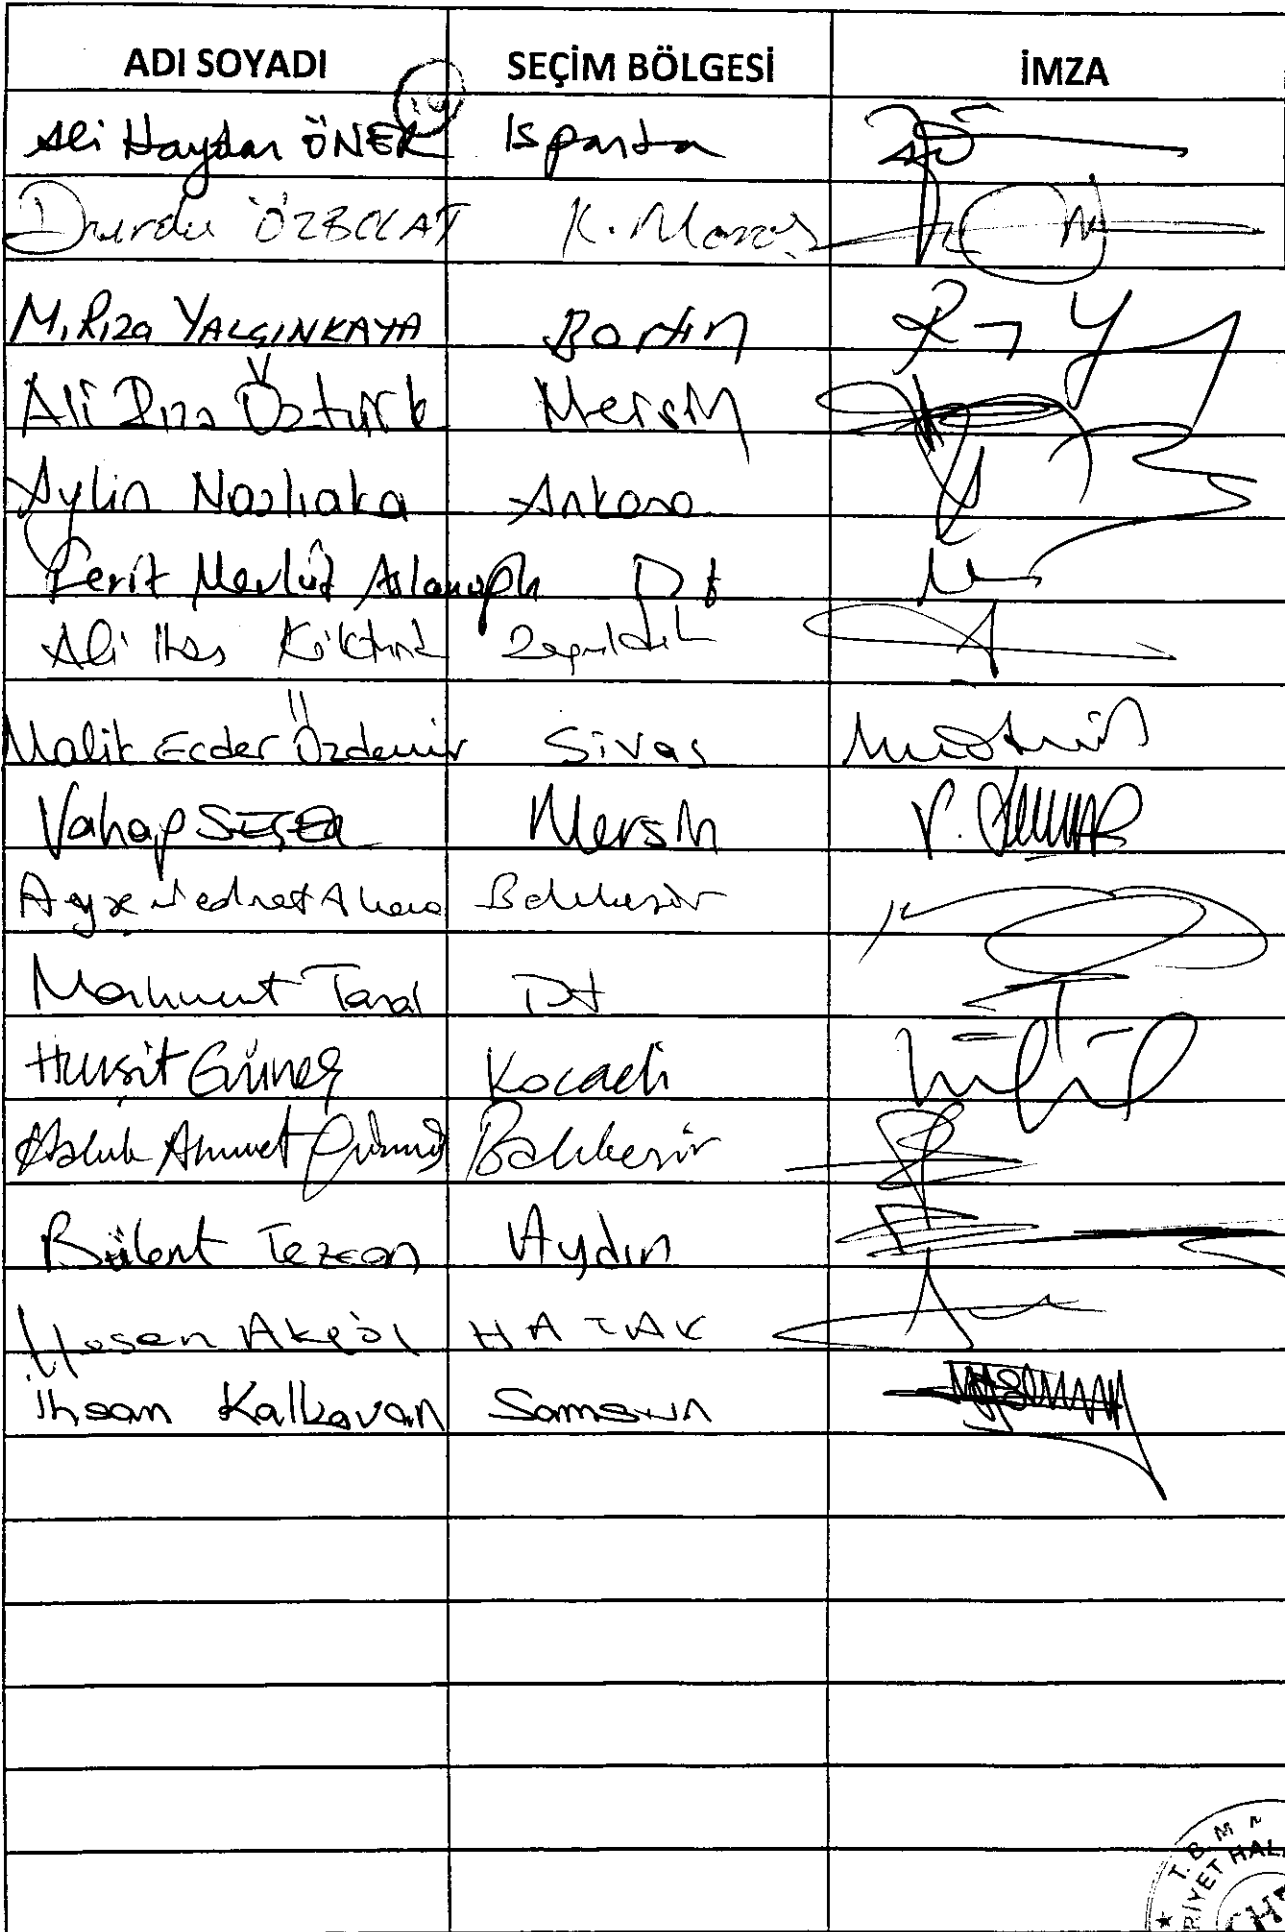 ADI SOYADI SEÇİM BÖLGESİ İMZA
Ali Haydar ÖNER Isparta
Durdu ÖZBOLAT K. Maraş
M. Rıza YALÇINKAYA Bartın
Ali Rıza Öztürk Mersin
Aylin Nazlıaka Ankara
Ferit Mevlüt Aslanoğlu İst
Ali İhsan Köktürk Zonguldak
Malik Ecder Özdemir Sivas
Vahap SEÇER Mersin
Ayşe Nedret Akova Balıkesir
Mahmut Tanal İst
Hurşit Güneş Kocaeli
Haluk Ahmet Gümüş Balıkesir
Bülent Tezcan Aydın
Hasan Akgöl HATAY
İhsan Kalkavan Samsun
T.B.M.M
RİYET HAL